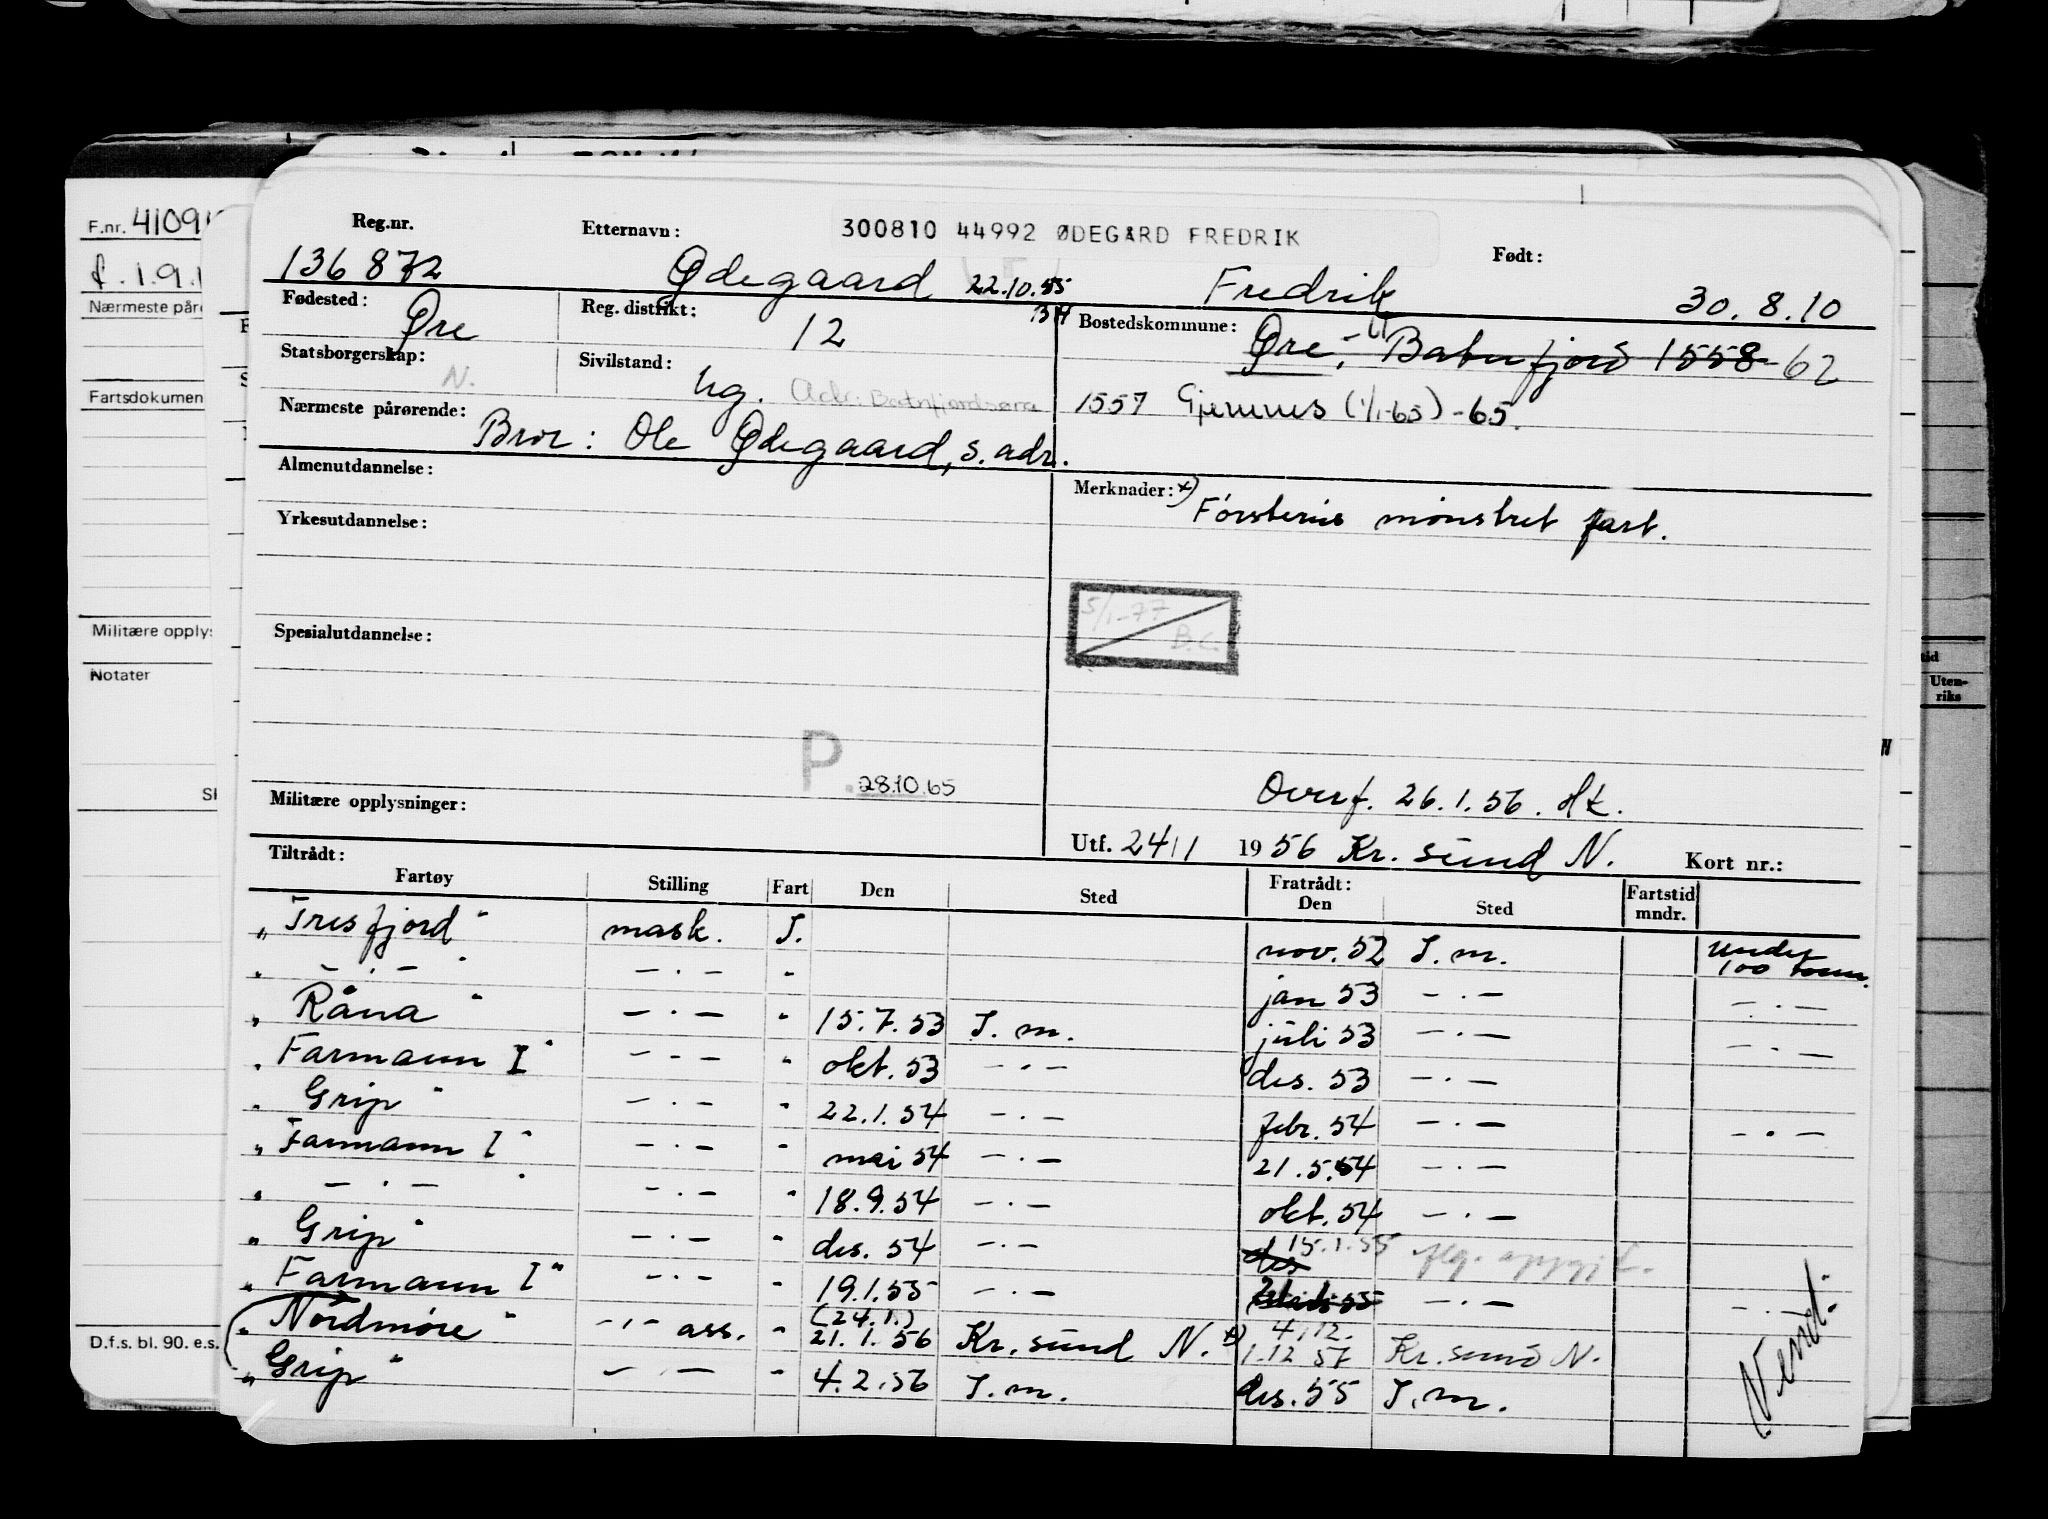 F.nr. 41091
f. 1.9.1
Nærmeste pår
Fartsdokumen
Militære opplys
Notater
D.f.s. bl. 90. e.s.
Uten-
riks
Reg.nr. Etternavn: 300810 44992 ØDEGÅRD FREDRIK Født:
136 872 Ødegaard 22.10.55 Fredrik 30.8.10
Fødested: Øre Reg. distrikt: 12 Bostedskommune: Øre, Batnfjord 1558-62
Statsborgerskap: N. Sivilstand: ug. Adr: Batnfjordsøra 1557 Gjemnes (1/1-65) -65.
Nærmeste pårørende: Bror: Ole Ødegaard, s. adr.
Almenutdannelse: Merknader: x) mønstret fart.
Yrkesutdannelse:
5/1-77
B.C.
Spesialutdannelse:
P. 28.10.65
Overf. 26.1.56.
Militære opplysninger:
Utf. 24/1 1956 Kr. sund N. Kort nr.:
Tiltrådt: Fratrådt:
Fartøy Stilling Fart Den Sted Den Sted Fartstid mndr.
"Tresfjord" mask. I. nov. 52 I.m. under 100 tonn.
" — . — " — . — " jan 53 — . — — . —
"Råna" — . — " 15.7.53 I.m. juli 53 — . — — . —
"Farmann I" — . — " okt. 53 — . — des. 53 — . —
"Grip" — . — " 22.1.54 — . — febr. 54 — . — — . —
"Farmann I" — . — " mai 54 — . — 21.5.54 — . —
" — . — " — . — " 18.9.54 — . — okt. 54 — . —
"Grip" — . — " des. 54 — . — des 15.1.55
"Farmann I" — . — " 19.1.55 — . — — . — — . —
"Nordmøre" — . — ass. " (24.1.) 21.1.56 Kr. sund N. x) 4.12. 1.12 57 Kr. sund N.
"Grip" — . — " 4.2.56 I.m. des. 55 I.m.
Vend.